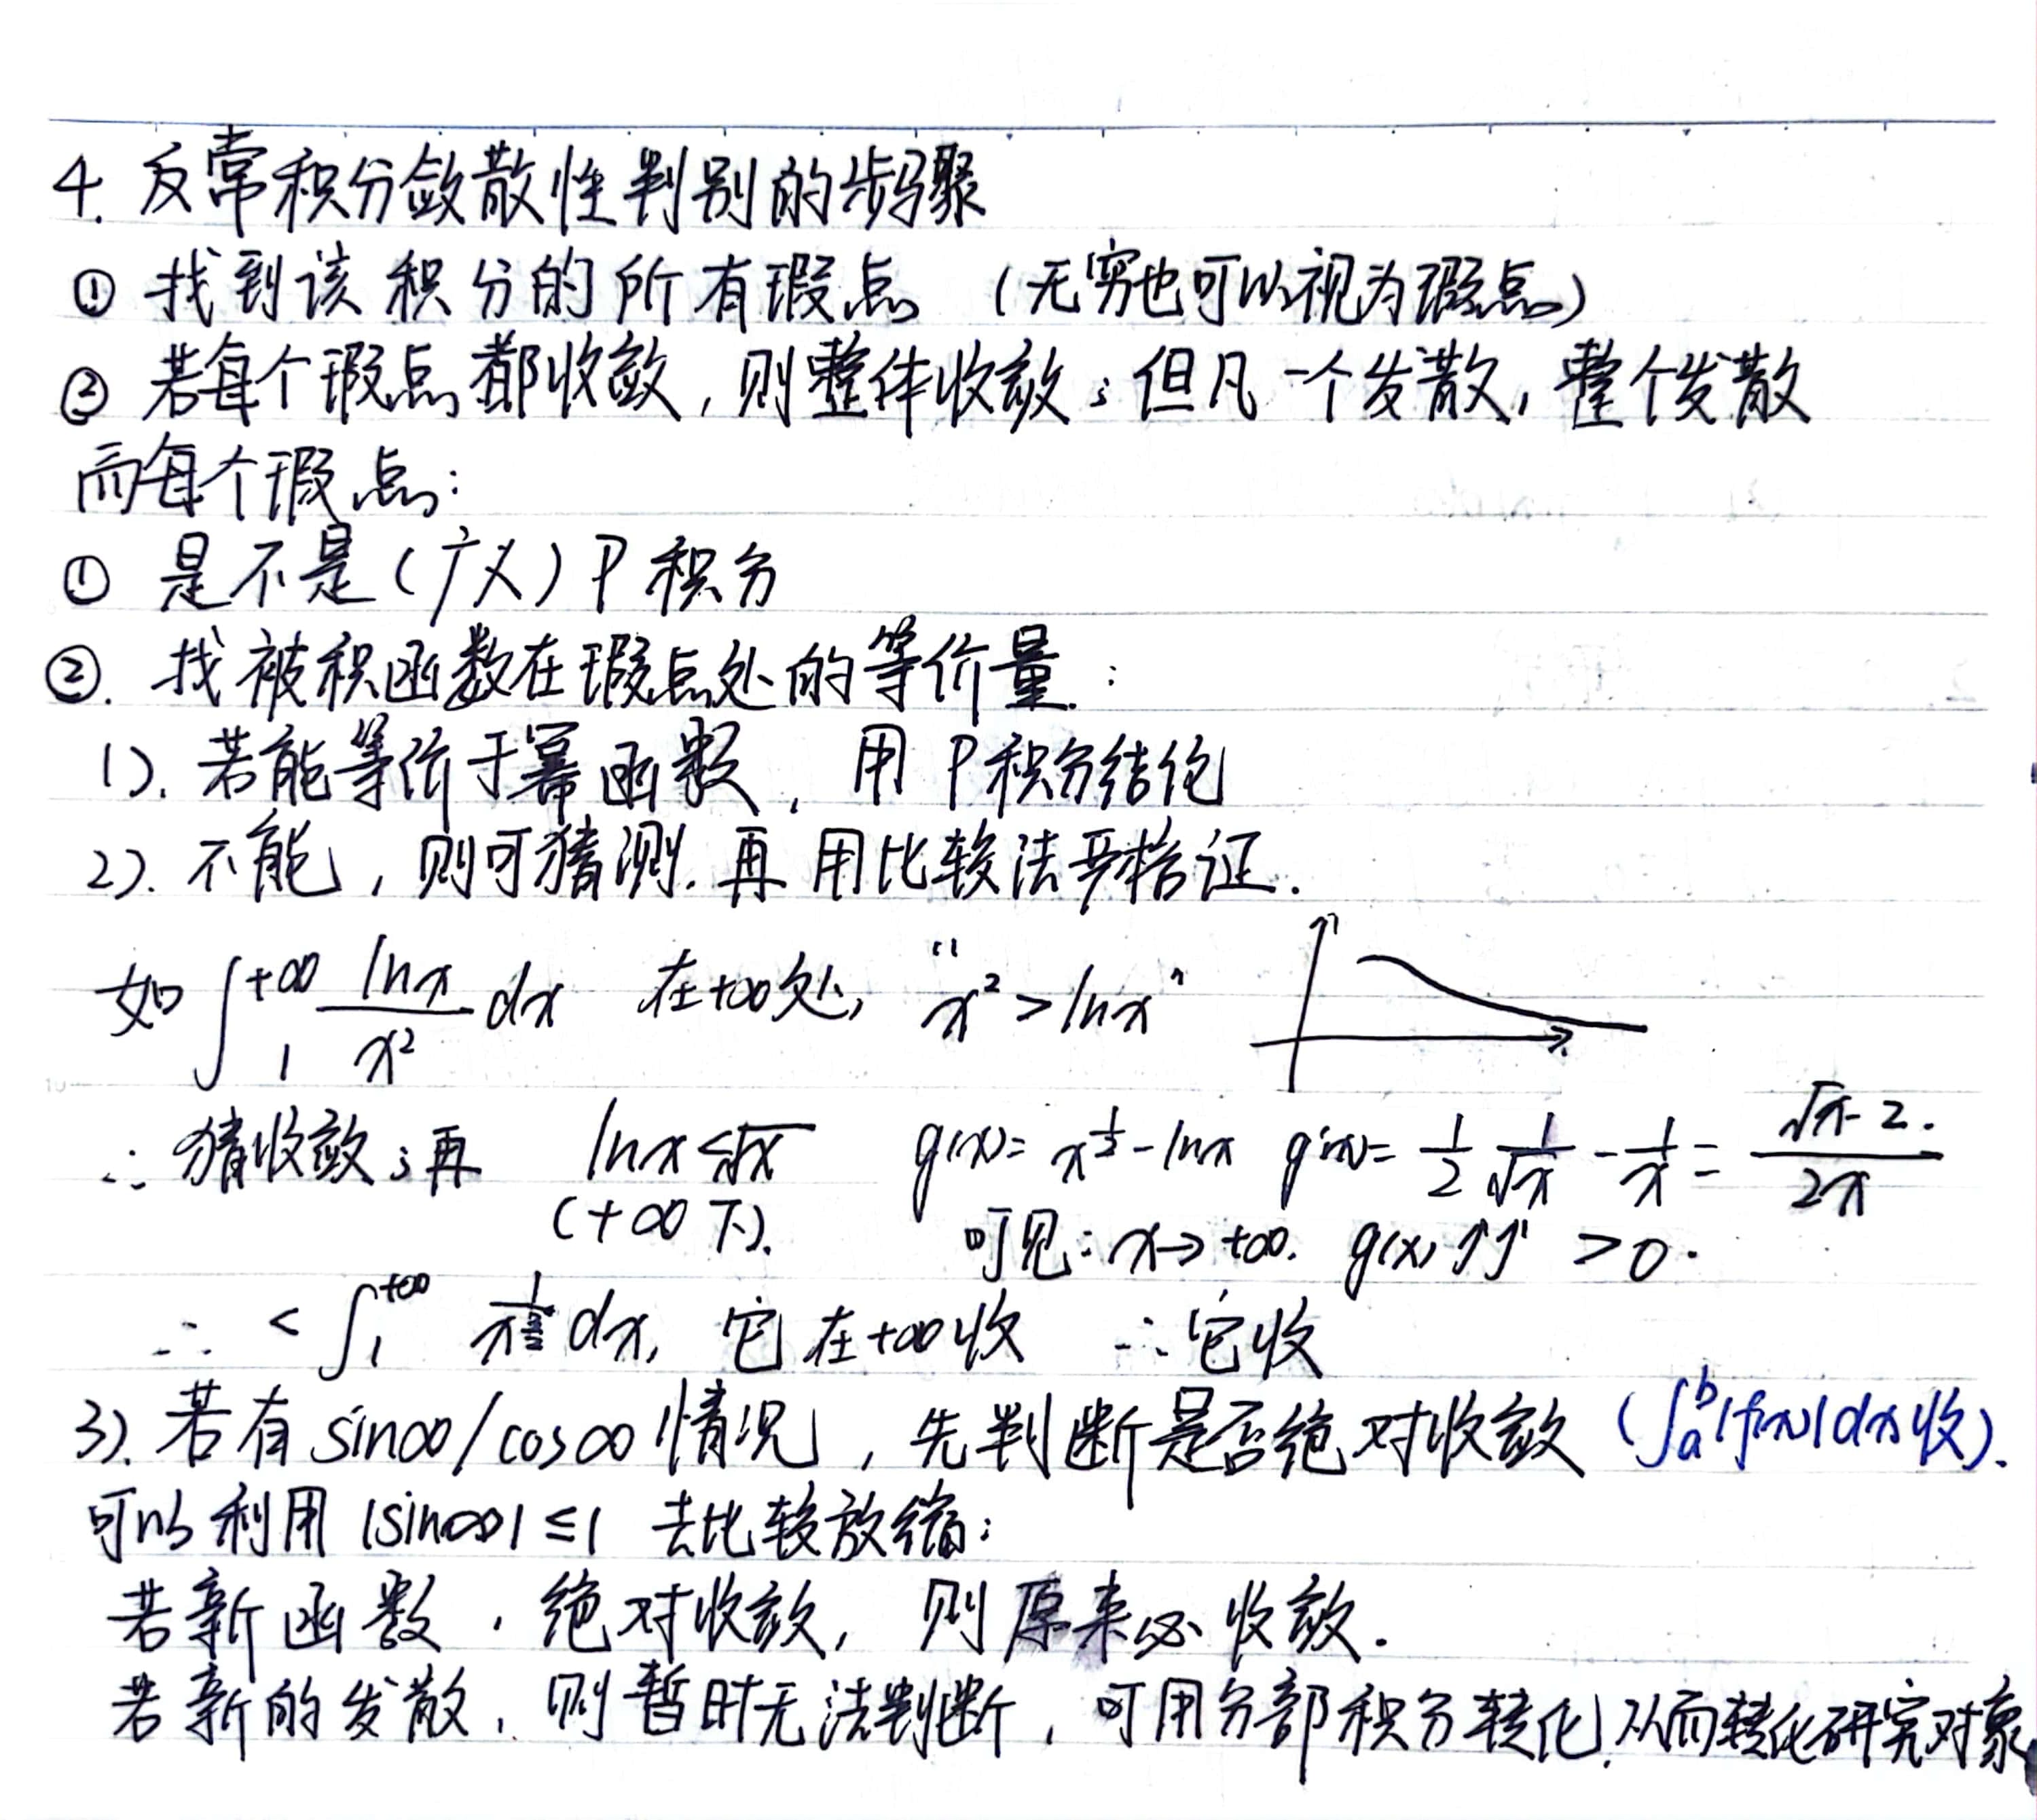 4. 反常积分敛散性判别的步骤
① 找到该积分的所有瑕点 (无穷也可以视为瑕点)
② 若每个瑕点都收敛, 则整体收敛; 但凡一个发散, 整个发散
而每个瑕点:
① 是不是(广义)P积分
②. 找被积函数在瑕点处的等价量:
1). 若能等价于幂函数, 用P积分结论
2). 不能, 则可猜测. 再用比较法严格证.
如 ∫₁^{+∞} lnx/x² dx 在+∞处, "x² > lnx"
∴ 猜收敛; 再 lnx < √x g(x)= x^{1/2} - lnx g'(x)= 1/2 1/√x - 1/x = (√x-2)/2x.
(+∞下). 可见: x→+∞. g(x)↗ >0.
∴ < ∫₁^{+∞} 1/x^{3/2} dx, 它在+∞收 ∴它收
3). 若有 sin∞/cos∞ 情况, 先判断是否绝对收敛 (∫ₐᵇ|f(x)|dx收).
可以利用 |sin∞| ≤ 1 去比较放缩:
若新函数, 绝对收敛, 则原来必收敛.
若新的发散, 则暂时无法判断, 可用分部积分转化, 从而转化研究对象